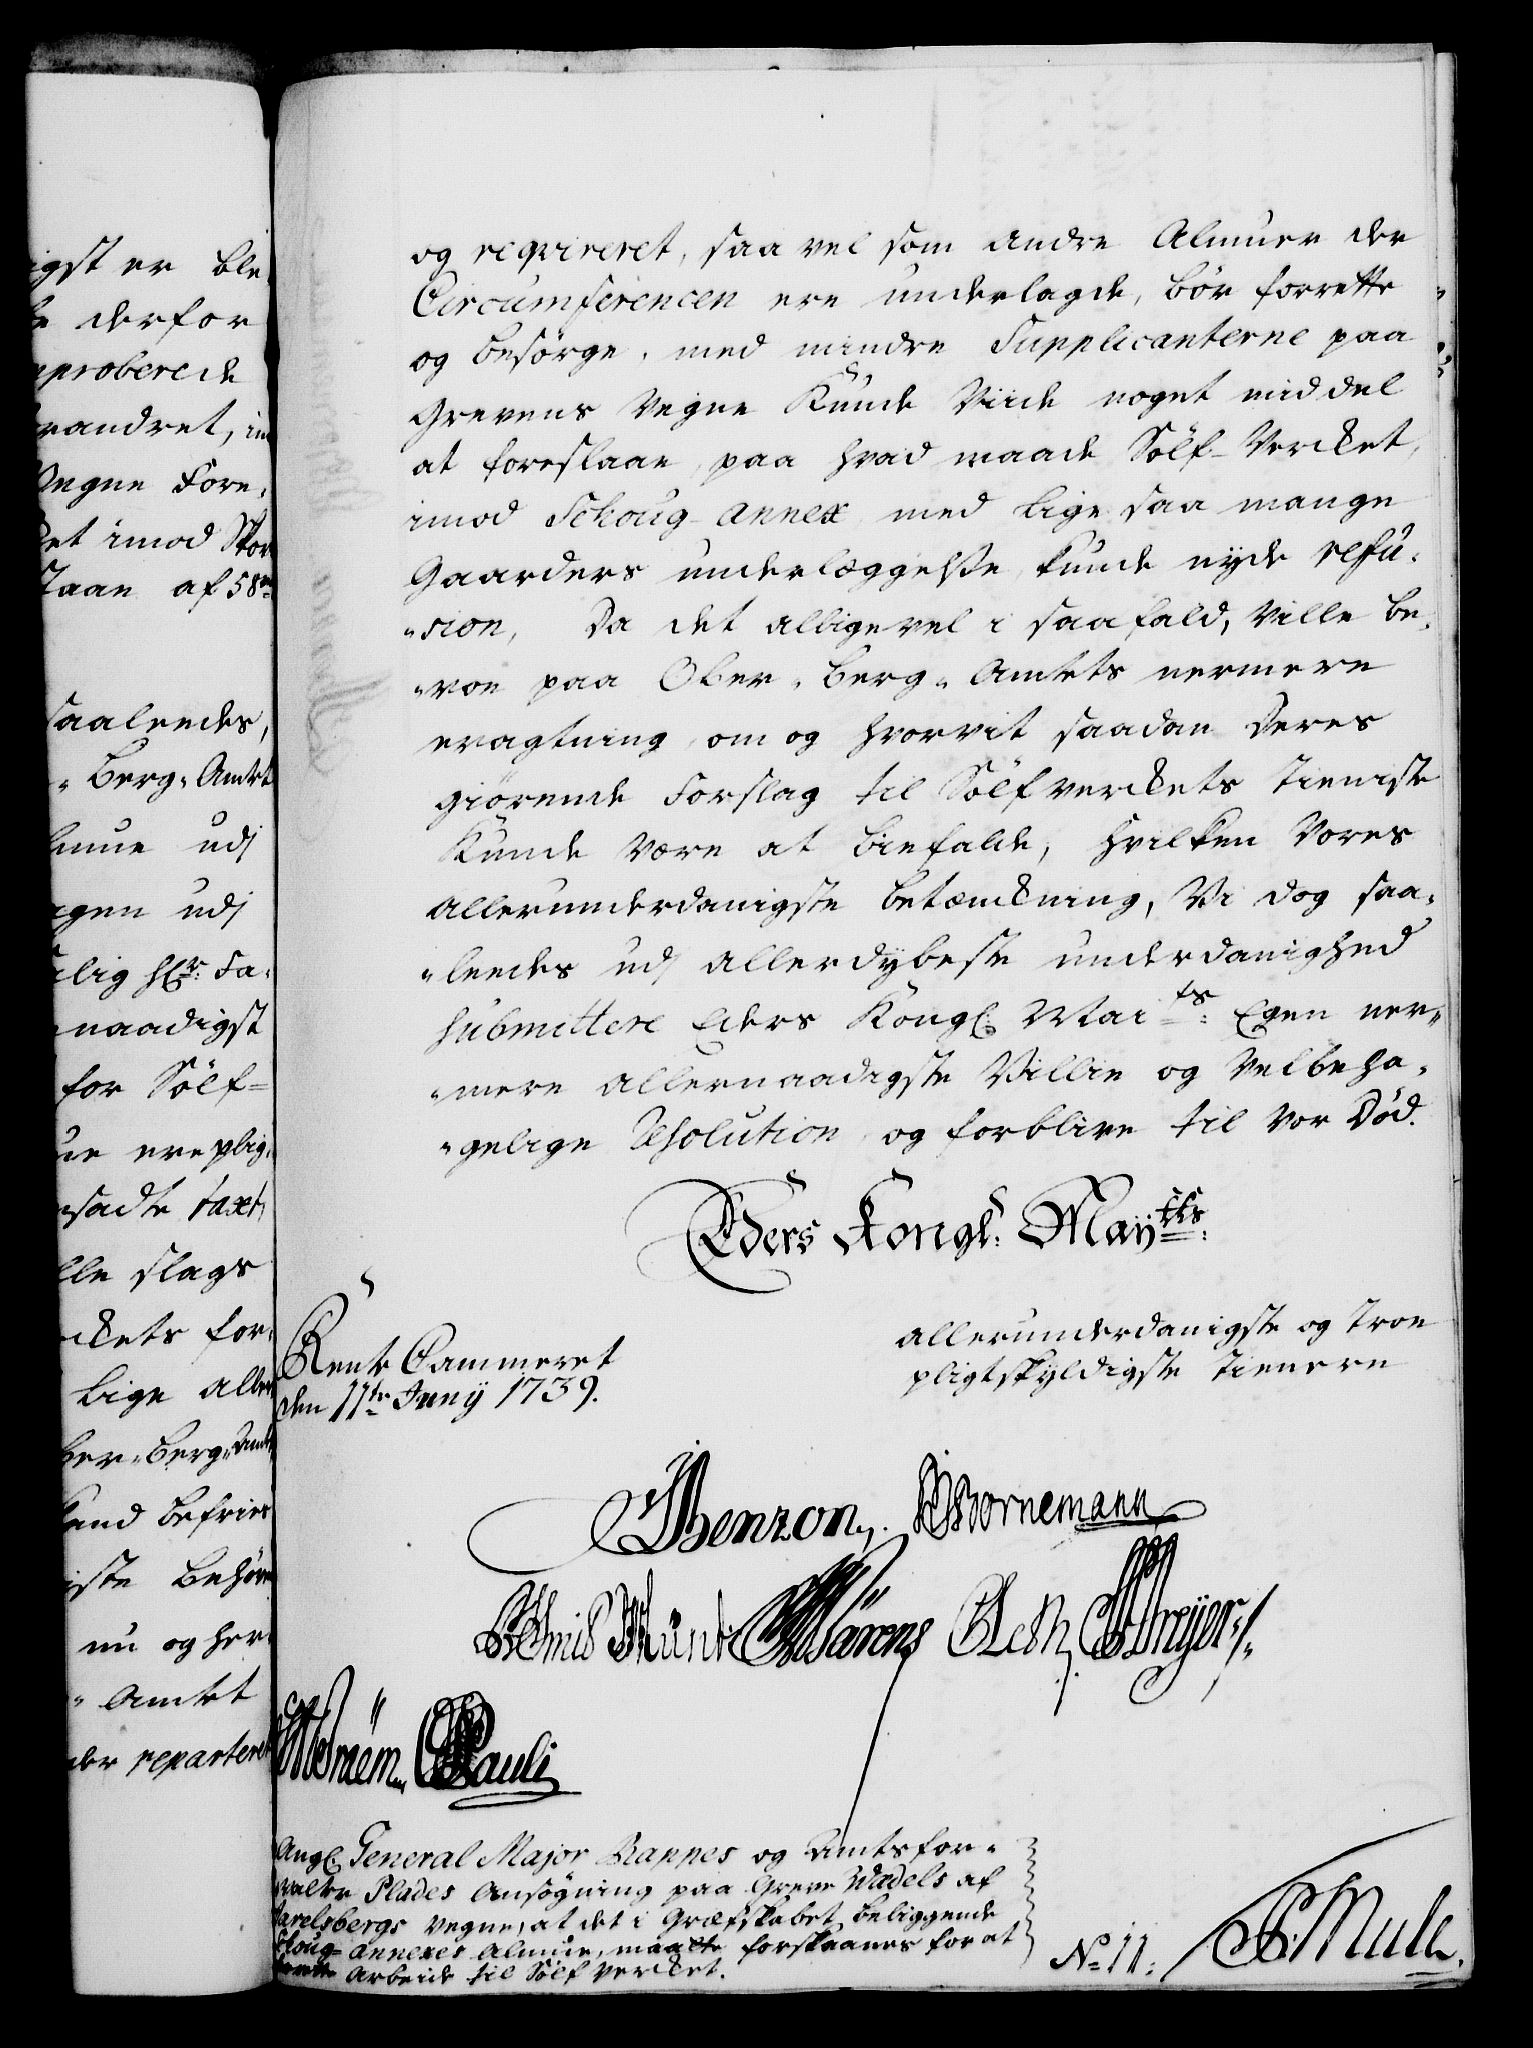 igst er ble,
derfor
approberede
randret, in
Vegne Fore,
det imod Skou
staan af 58
saaleedes,
Berg- Amtet
lmue udj
agen udj
ilig Fa,
naadigst
for Sölf-
ue ere plig,
satte taxt,
lle slags
ckets for,
lige aller
ber- Berg- Amts
Kand befries
iste behöre
nu og her,
- Amtet
der reparteret
og reqvireret, saa vel som andre Almuer der
Circumferencen ere underlagde, bör forrette
og besörge, med mindre Supplicanterne paa
Grevens Vegne Kunde Viide noget middel
at foreslaae, paa hvad maade Sölf-Vercket,
imod Schoug-annex med lige saa mange
Gaarders underlæggelse, kunde nyde refu,
sion, Da det alligevel i saafald, Ville be,
roe paa Ober- Berg- Amtets nermere
eragtning, om og hvorvit saadan Deres
giörende Forslag til Sölfverckets Tieniste
Kunde være at biefalde, Hvilken Vores
allerunderdanigste betænckning, Vi dog saa,
leedes udj allerdybeste underdanighed
submittere Eders Kongl: Maits: Egen ner,
mere allernaadigste Villie og Velbeha,
gelige Resolution, og forblive til vor Död.
Eders Kongl: Mayts:
Rente Cammeret
den 11te Juny 1739.
allerunderdanigste og Troe
pligtskyldigste Tienere
Benzon, Bornemann
Munk Leth, Dreyer
Pauli
Angl: General Major Rappes og Amtsfor,
valter Plades Ansögning paa Greve Wedels af
Jarelsbergs Vegne, at det i Græfskabet beliggende
Skoug-annexes Almue, maatte forskaanes for at
Arbeide til Sölf Verket.
No 11:
Mule.